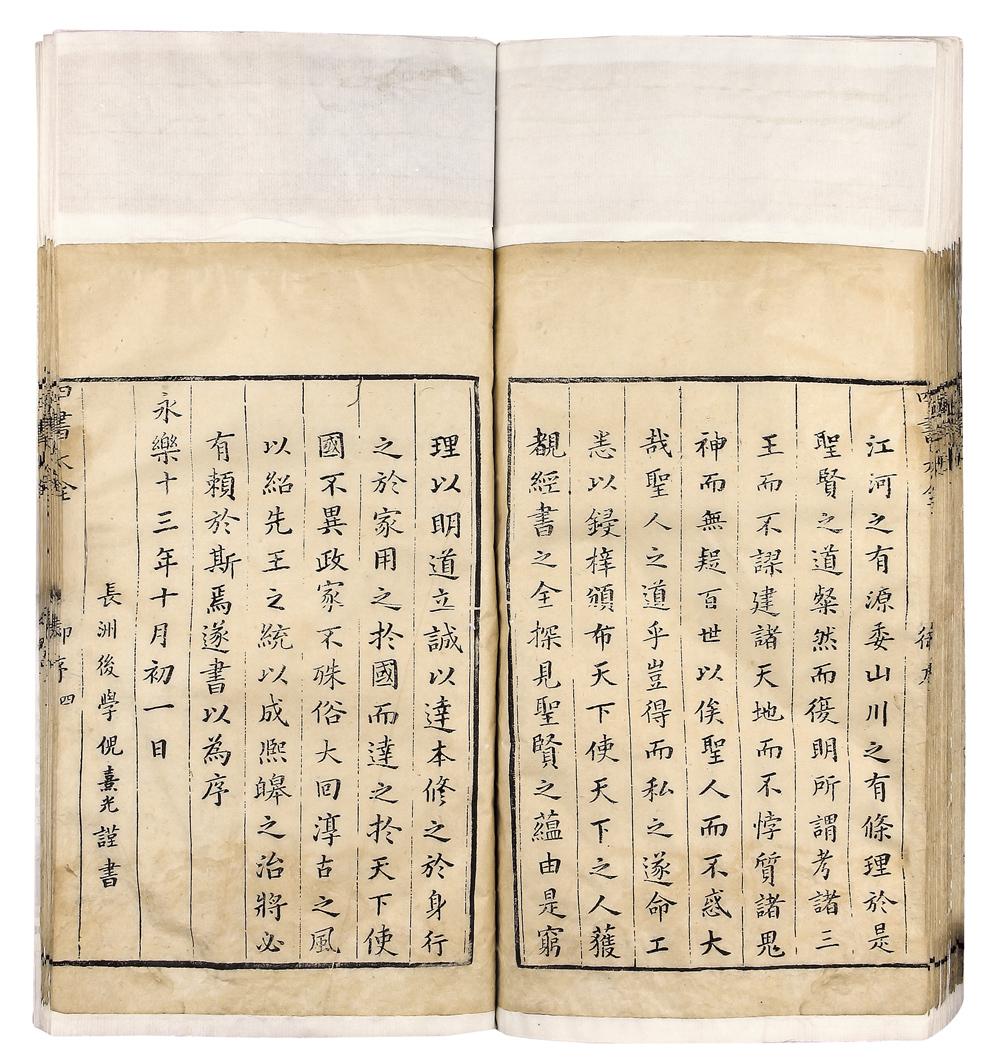 江河之有源委山川之有條理於是
聖賢之道粲然而復明所謂考諸三
王而不謬建諸天地而不悖質諸鬼
神而無疑百世以俟聖人而不惑大
哉聖人之道乎豈得而私之遂命工
悉以鋟梓頒布天下使天下之人獲
覩經書之全探見聖賢之蘊由是窮
理以明道立誠以達本修之於身行
之於家用之扵國而達之扵天下使
國不異政家不殊俗大回淳古之風
以紹先王之統以成熙皞之治將必
有賴於斯焉遂書以為序
永樂十三年十月初一日
長洲後學倪熹光謹書
四書大全
御序
四